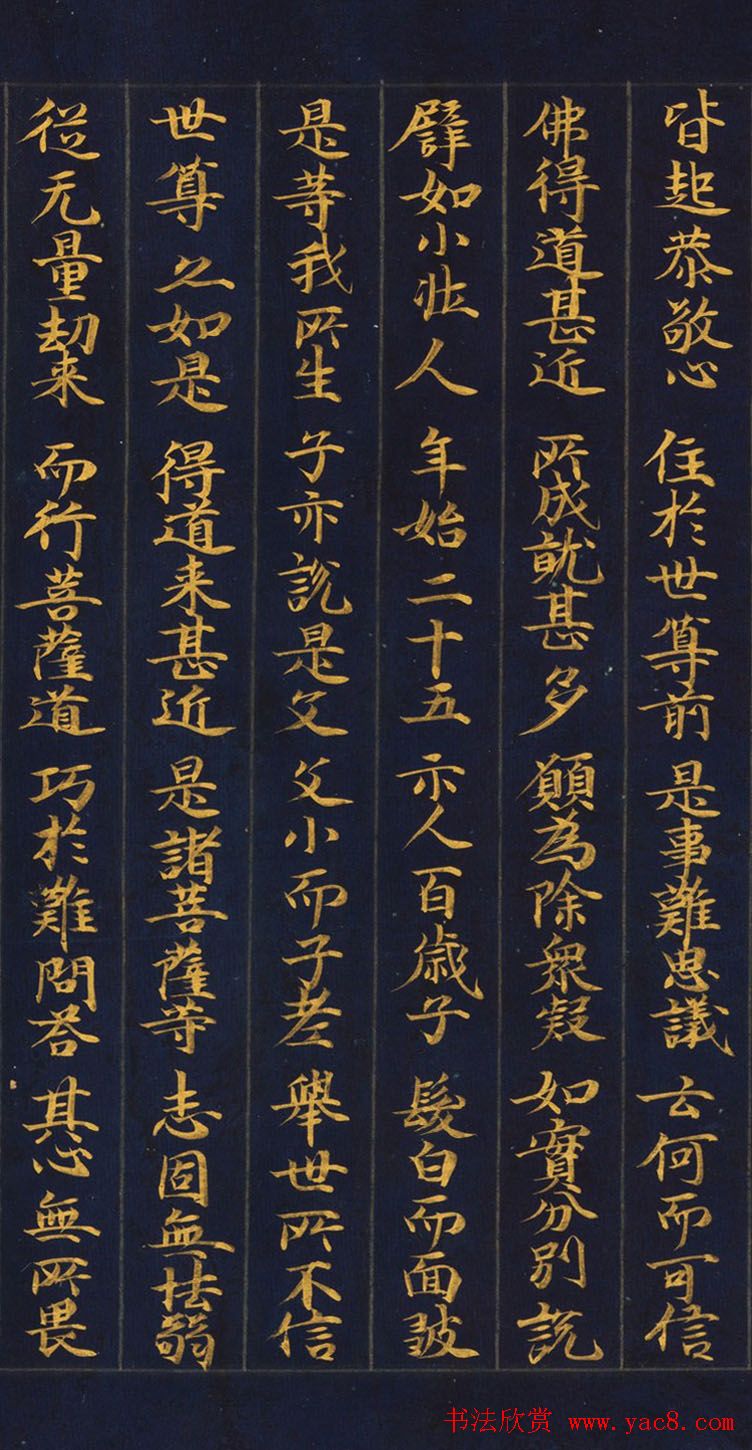 皆起恭敬心 住於世尊前 是事難思議 云何而可信
佛得道甚近 所成就甚多 願為除衆疑 如實分別説
譬如小壯人 年始二十五 示人百歳子 髮白而面皺
是等我所生 子亦説是父 父小而子老 舉世所不信
世尊亦如是 得道来甚近 是諸菩薩等 志固無怯弱
從无量劫来 而行菩薩道 巧於難問荅 其心無所畏
书法欣赏 www.yac8.com